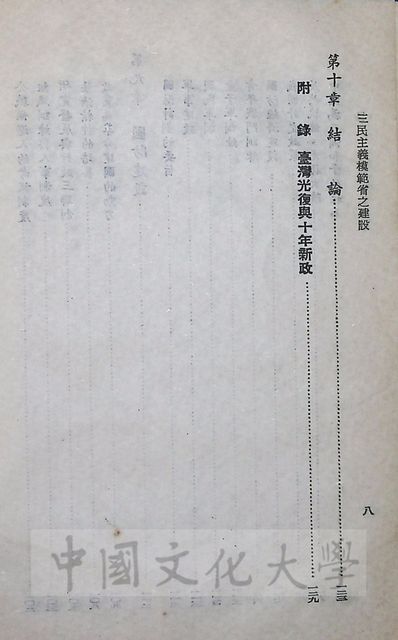 三民主義模範省之建設
八
第十章 結 論……一二三
附 錄 臺灣光復與十年新政……一二九
中國文化大學